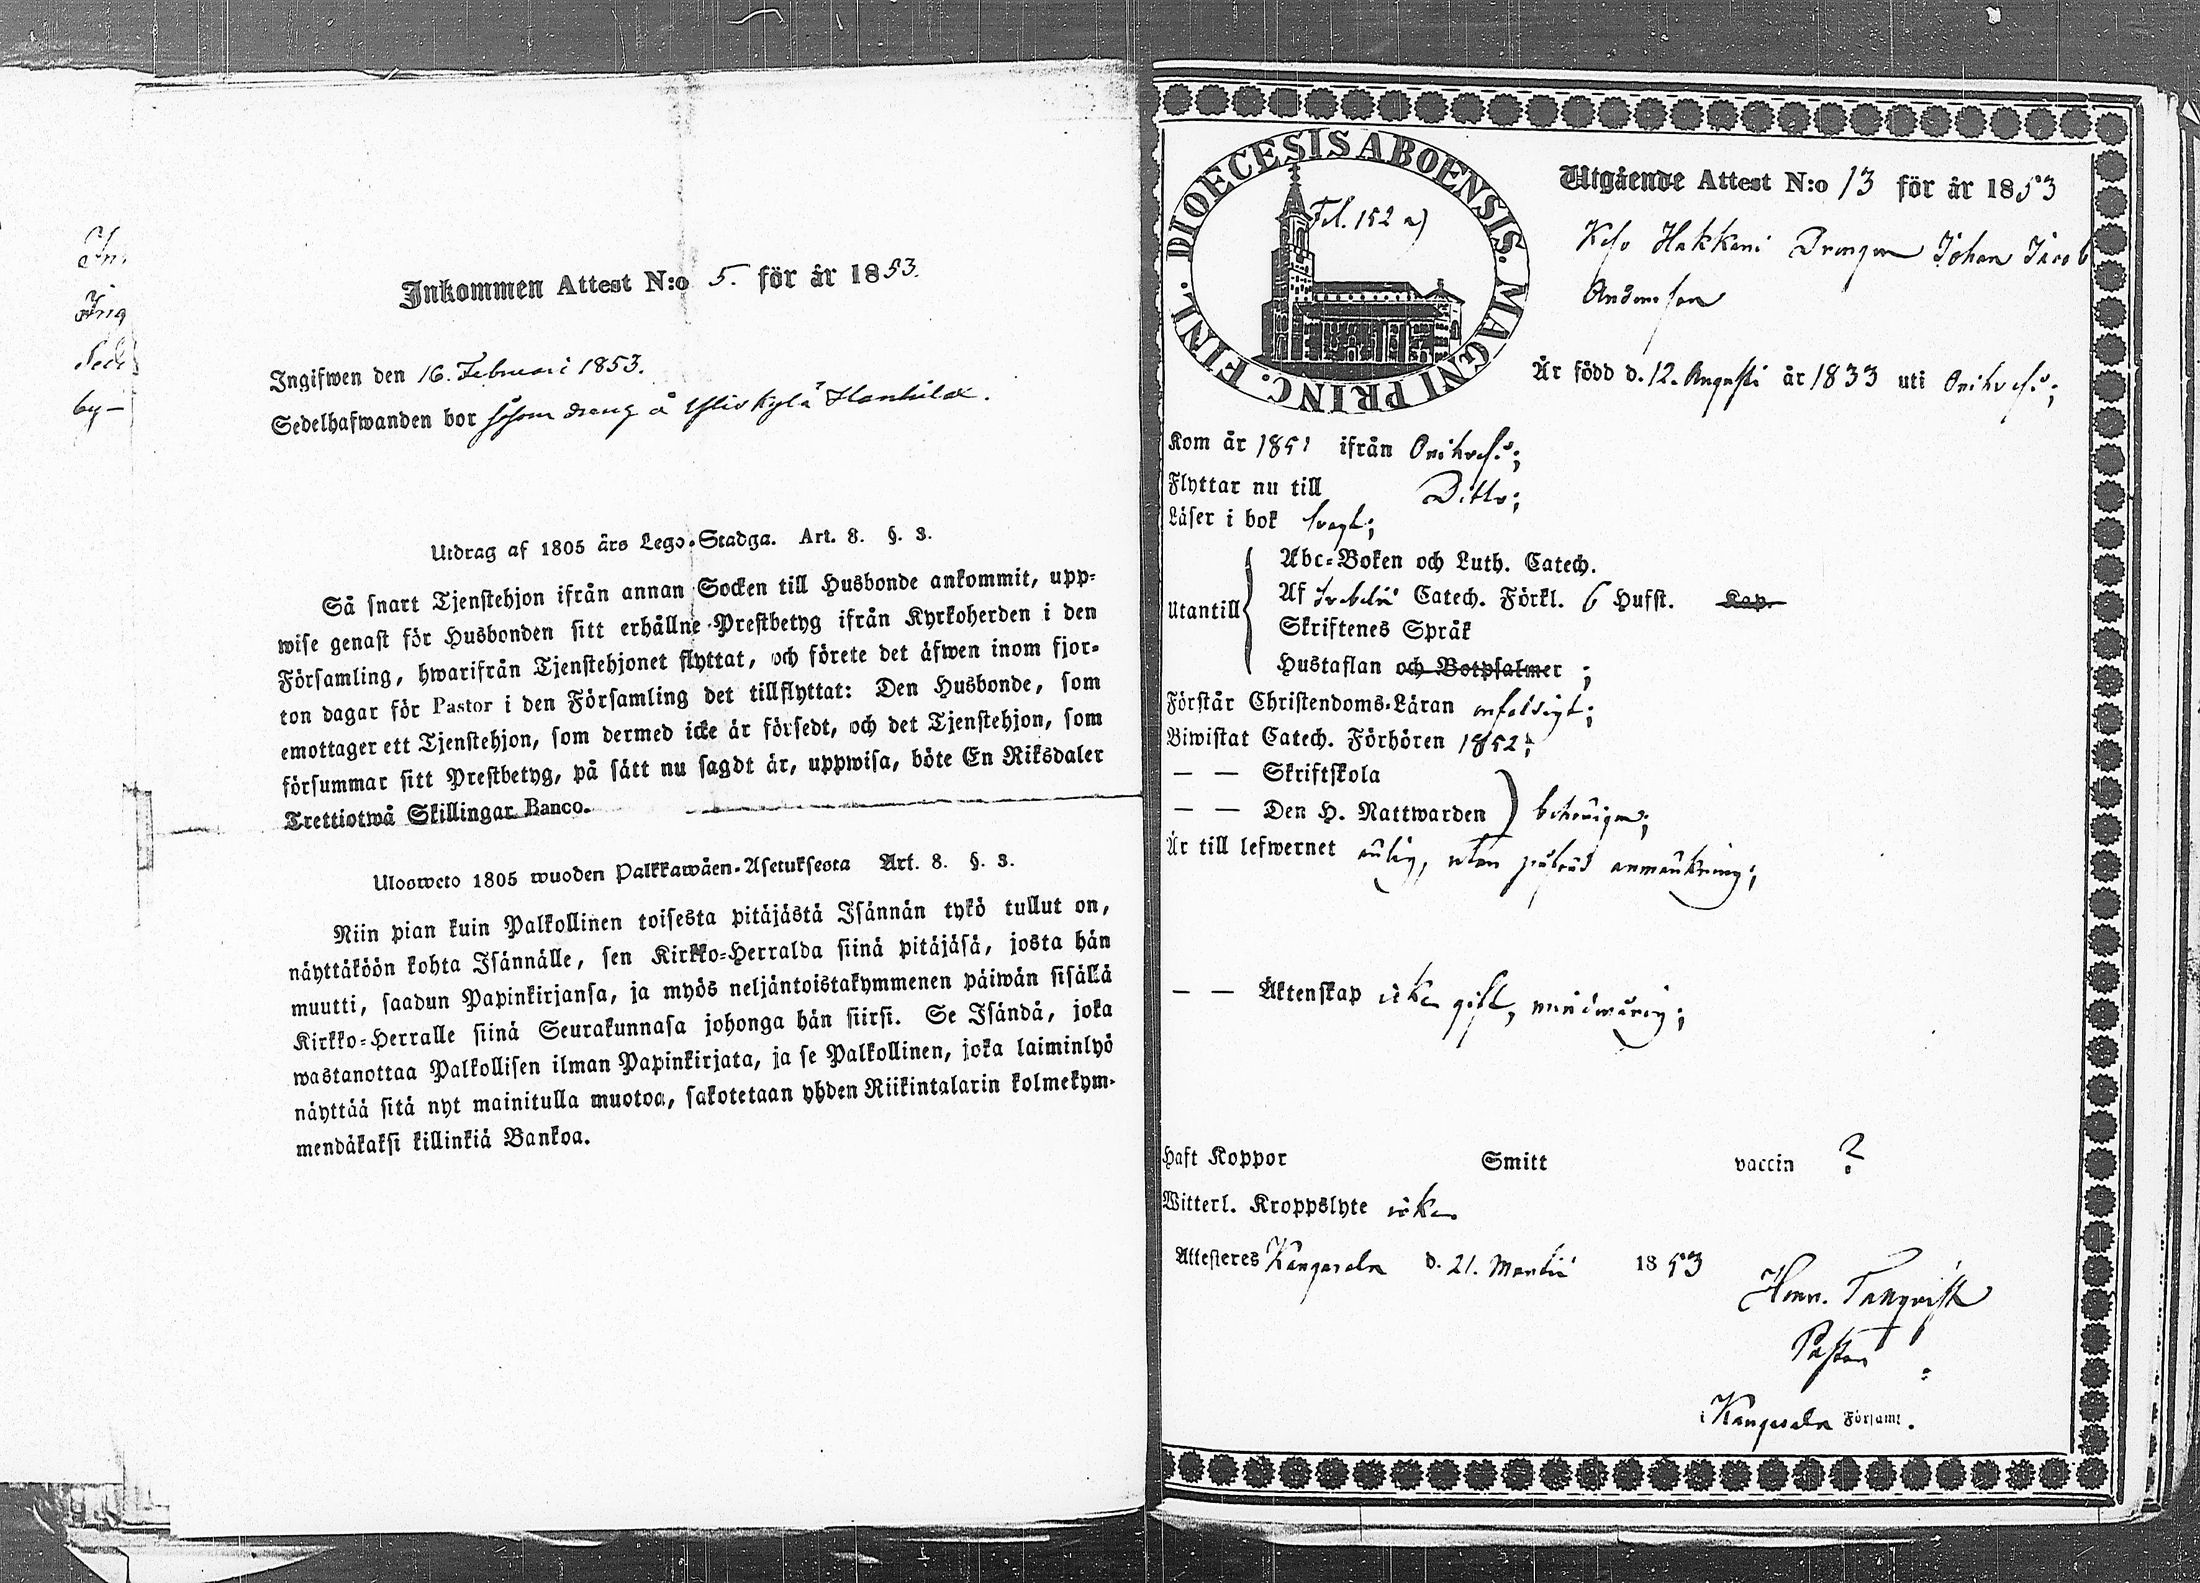 Inkommen Attest N:o 5. för år 1853.
Ingifwen den 16. Februari 1853.
Sedelhafwanden bor såsom dreng å
Utdrag af 1805 års Lego-Stadga. Art. 8. §. 3.
Så snart Tjenstehjon ifrån annan Socken till Husbonde ankommit, upp-
wise genast för Husbonden sitt erhållne Prestbetyg ifrån Kyrkoherden i den
Församling, hwarifrån Tjenstehjonet flyttat, och förete det äfwen inom fjor-
ton dagar för Pastor i den Församling det tillflyttat: Den Husbonde, som
emottager ett Tjenstehjon, som dermed icke är försedt, och det Tjenstehjon, som
försummar sitt Prestbetyg, på sätt nu sagdt är, uppwisa, böte En Riksdaler
Trettiotwå Skillingar Banco.
Ulosweto 1805 wuoden Palkkawäen-Asetuksesta Art. 8. §. 3.
Niin pian kuin Palkollinen toisesta pitäjästä Isännän tykö tullut on,
näyttäköön kohta Isännälle, sen Kirkko-Herralda siinä pitäjäsä, josta hän
muutti, saadun Papinkirjansa, ja myös neljäntoistakymmenen päiwän sisällä
Kirkko-Herralle siinä Seurakunnasa johonga hän siirsi. Se Isändä, joka
wastanottaa Palkollisen ilman Papinkirjata, ja se Palkollinen, joka laiminlyö
näyttää sitä nyt mainitulla muotoa, sakotetaan yhden Riikintalarin kolmekym-
mendäkaksi killinkiä Bankoa.
DIOECESIS ABOENSIS. MAGNI PRINC. FINL.
Fol. 152 a)
Utgående Attest N:o 13 för år 1853
Hakkani Drengen Johan Jacob
Andersson
Är född d. 12. Augusti år 1833 uti Orihvesi;
Kom år 1851 ifrån Orihvesi;
Flyttar nu till Ditto;
Läser i bok svagt;
Utantill
Abc-Boken och Luth. Catech.
Af Svebelii Catech. Förkl. 6 Hufst. Kap.
Skriftenes Språk
Hustaflan och Botpsalmer ;
Förstår Christendoms-Läran enfaldigt;
Biwistat Catech. Förhören 1852;
— — Skriftskola
— — Den H. Nattwarden behörigen;
Är till lefwernet ärlig, utan påförd anmärkning;
— — Äktenskap icke gift, minderårig;
Haft Koppor Smitt vaccin ?
Witterl. Kroppslyte icke
Attesteres Kangasala d. 21. Martii 1853
Henr. Tallqvist
Pastor
i Kangasala Församl.